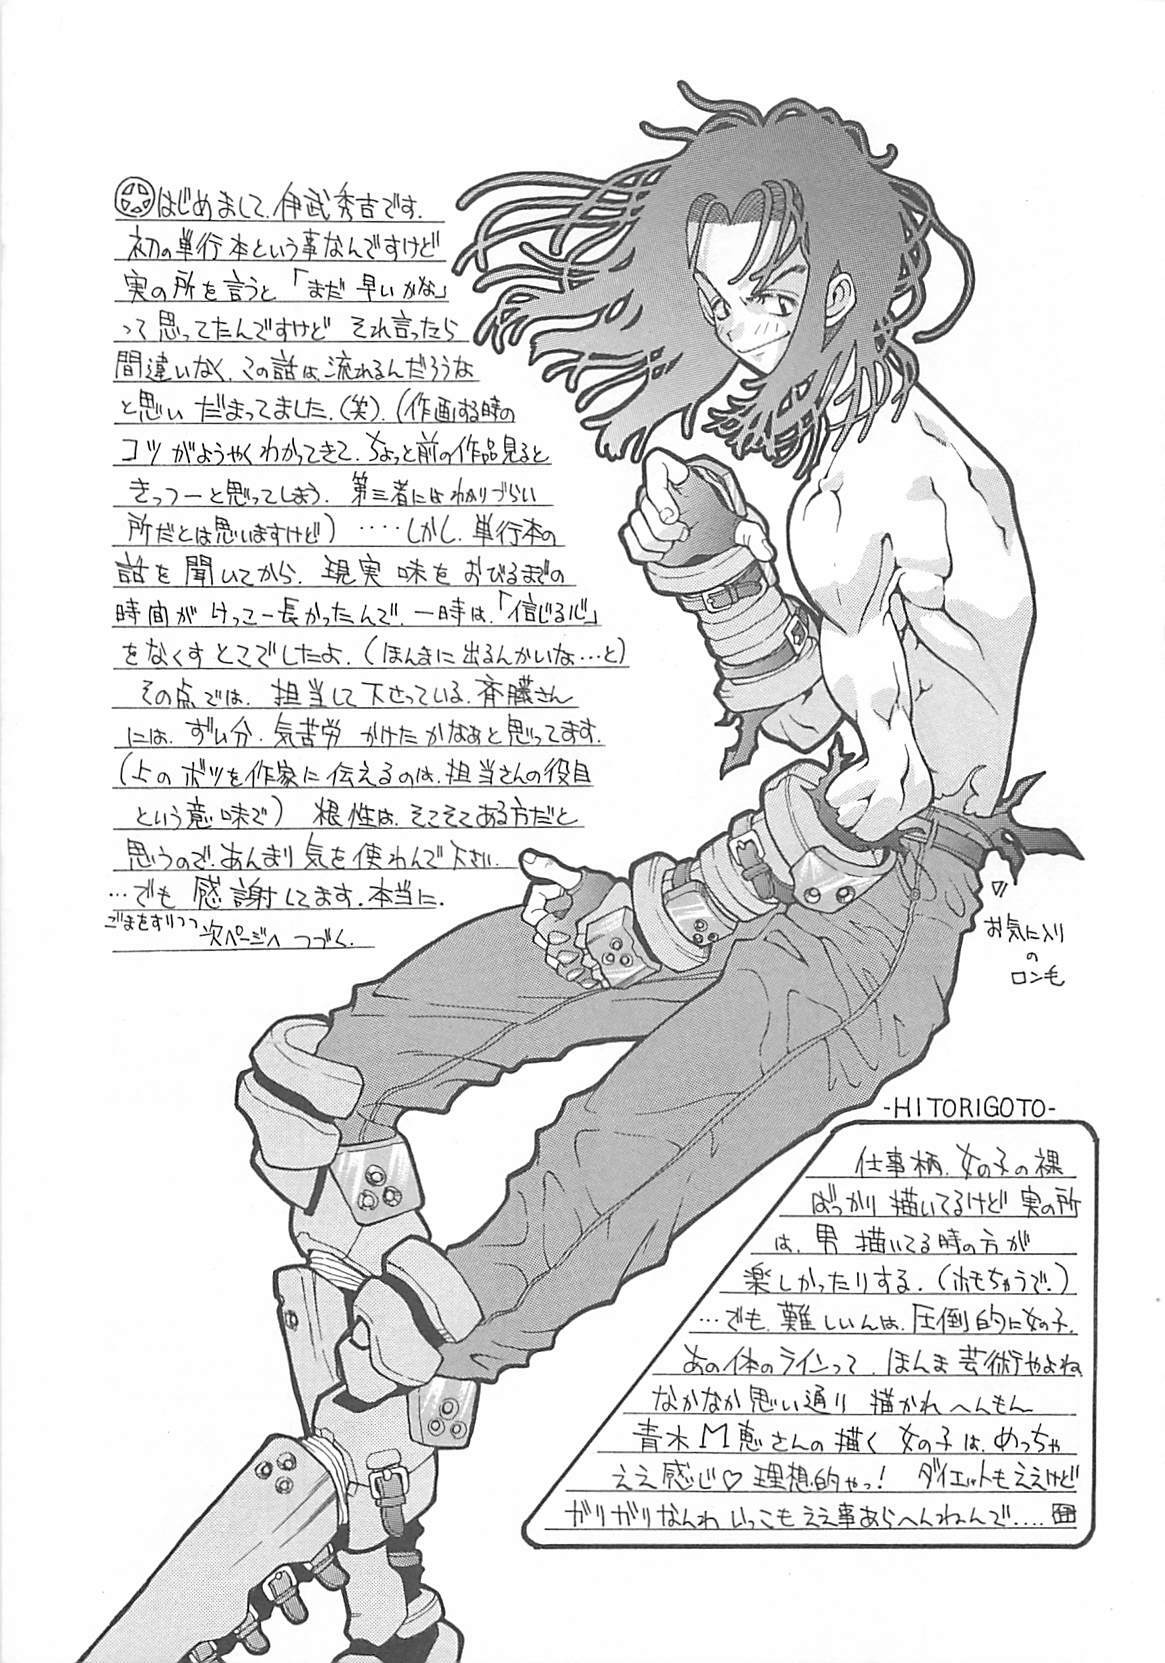 はじめまして、伊武秀吉です。
初の単行本という事なんですけど
実の所を言うと「まだ早いがな」
って思ってたんですけど それ言ったら
間違いなく、この話は、流れるんだろうな
と思い だまってました、(笑)、(作画する時の
コツがようやくわかってきて、ちょっと前の作品見ると
きっつーと思ってしまう、第三者にはわかりづらい
所だとは思いますけど) ‥‥しかし、単行本の
話を聞いてから、現実味をおびるまでの
時間がけっこー長かったんで、一時は、「信じる心」
をなくすとこでしたよ、(ほんまに出るんかいな…と)
その点では、担当して下さっている、斉藤さん
には、ずい分、気苦労かけたかなぁと思ってます、
(上のボツを作家に伝えるのは、担当さんの役目
という意味で) 根性は、そこそこある方だと
思うので、あんまり気を使わんで下さい、
…でも感謝してます、本当に、
ごまをすりつつ 次ページへ つづく、
お気に入り
の
ロン毛
-HITORIGOTO-
仕事柄、女の子の裸
ばっかり描いてるけど実の所
は、男描いてる時の方が
楽しかったりする、(ホモちゃうで、)
…でも、難しいんは、圧倒的に女の子、
あの体のラインって、ほんま芸術やよね
なかなか思い通り描かれへんもん
青木M恵さんの描く女の子は、めっちゃ
ええ感じ♡理想的やっ! ダイエットもええけど
ガリガリなんわいっこもええ事あらへんねんで‥‥